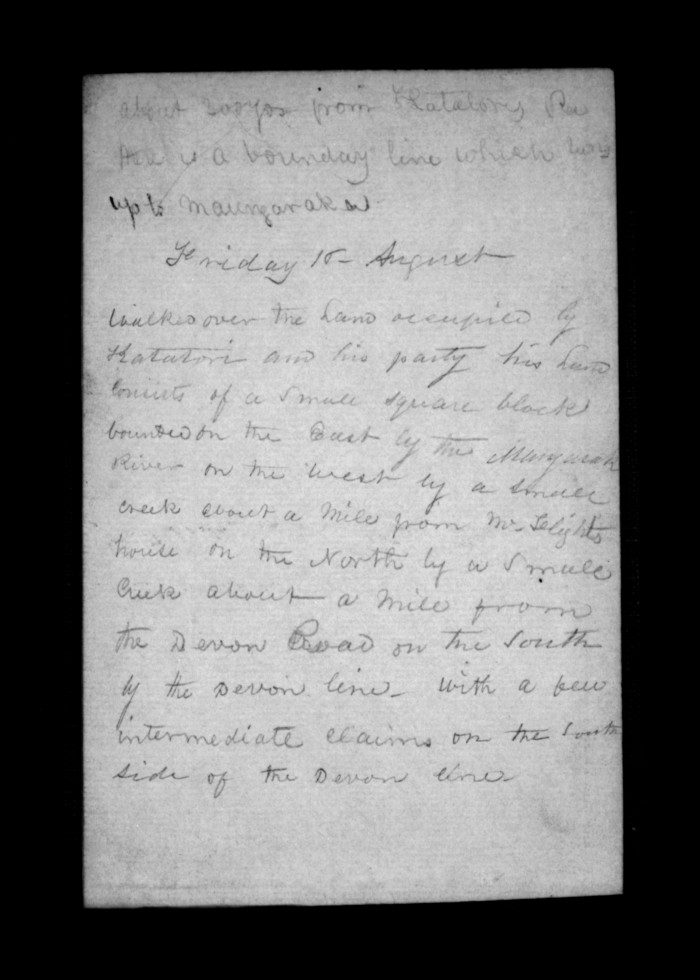 about 200 yds from Katatoris Pa
Here is a bounday line which runs
up to Maungaraka
Friday 18 - August
Walked over the Land occupied by
Katatori and his party his Land
Consists of a Small square block
bounded on the East by the
River on the West by a Small
creek about a Mile from Mr
house on the North by a Small
Creek about a Mile from
the Devon Road on the South
by the Devon line - With a few
intermediate claims on the South
side of the Devon line -